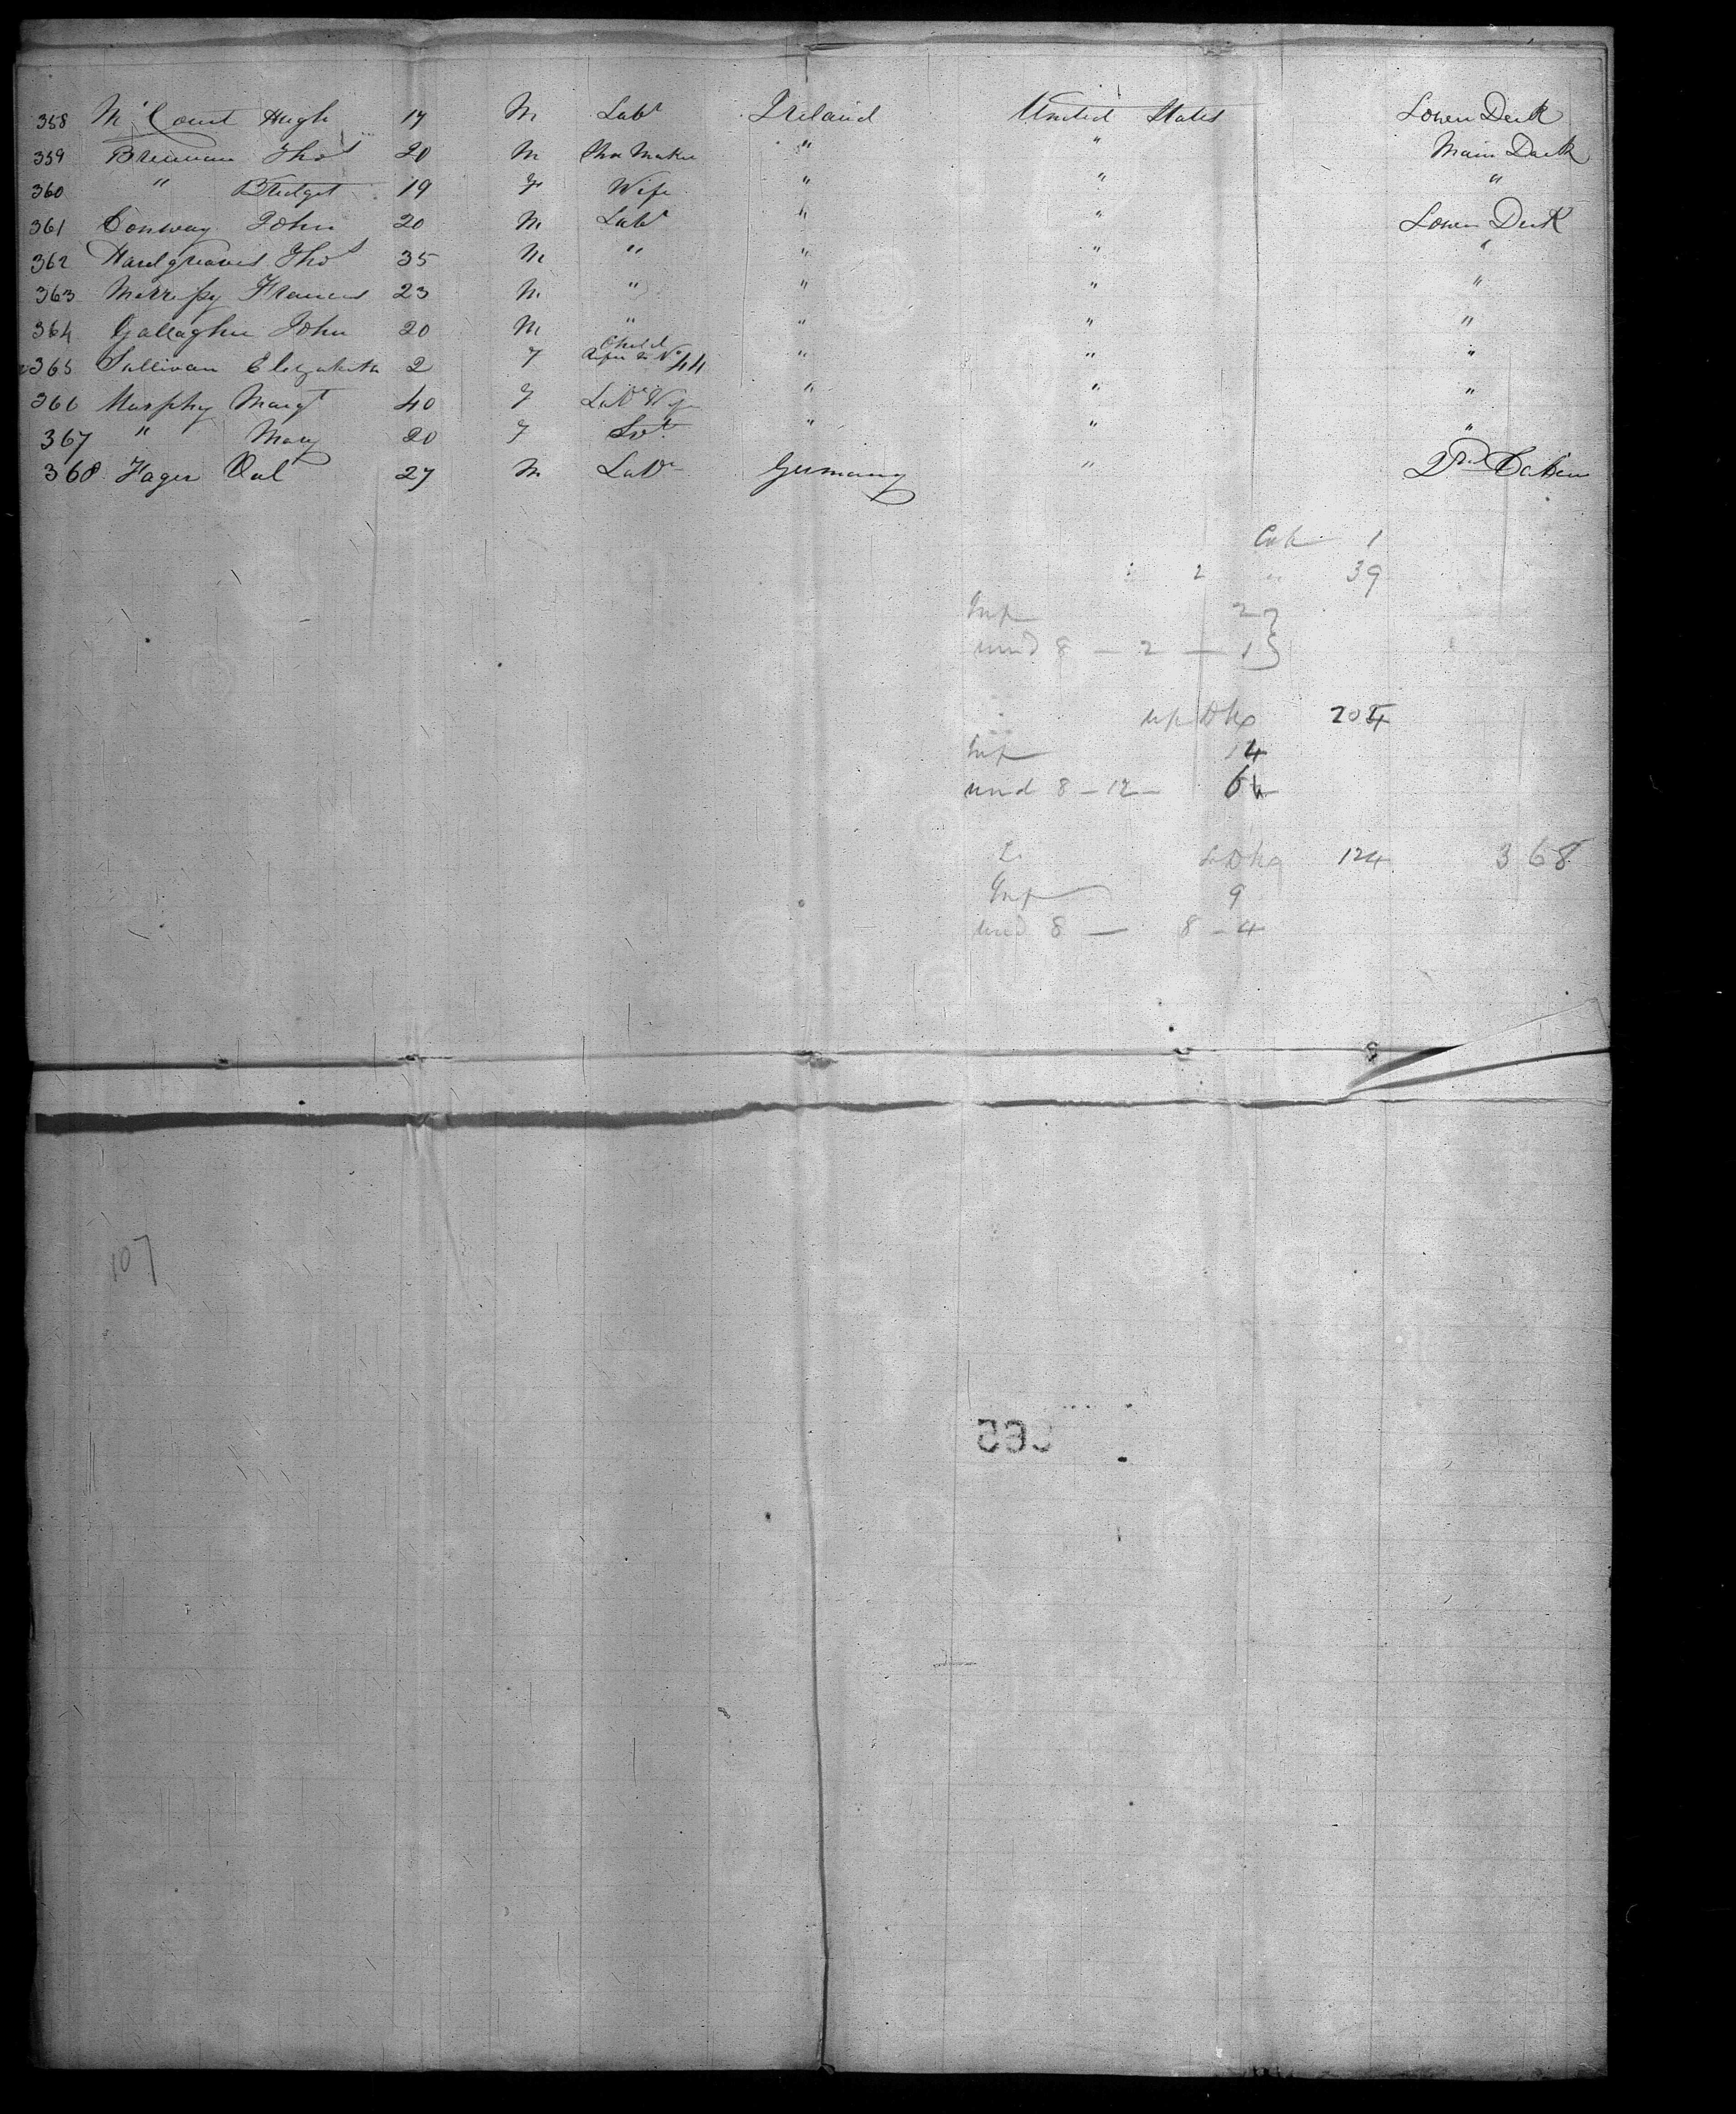 358 Mc Court Hugh 17 M Labr Ireland United States Lower Deck
359 Brennan Thos 20 M Shoe Maker " " Main Deck
360 " Bridget 19 F Wife " " "
361 Conway John 20 M Labr " " Lower Deck
362 Hardgreaves Thos 35 M " " " "
363 Morrissy Frances 23 M " " " "
364 Gallagher John 20 M " " " "
365 Sullivan Elizabeth 2 F Child No 44 " " "
366 Murphy Margt 40 F Labr Wife " " "
367 " Mary 20 F Svt " " "
368 Hager Val 27 M Labr Germany " 2nd Cabin
Cab 1
2 " 39
Inf 2
und 8 — 2 — 1
up Dk 204
Inf 14
und 8 — 12 — 6
L Dk 124 368
Inf 9
und 8 — 8 — 4
107